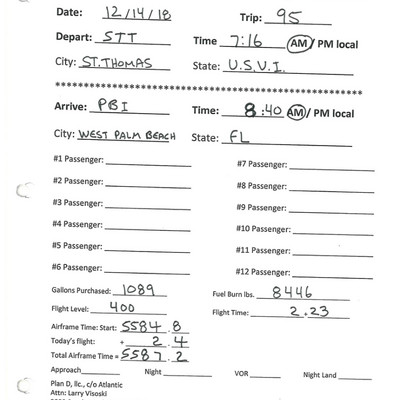 Date: 12/14/18 Trip: 95
Depart: STT Time 7:16 AM / PM local
City: ST. THOMAS State: U.S.V.I.
************************************************************
Arrive: PBI Time: 8:40 AM / PM local
City: WEST PALM BEACH State: FL
#1 Passenger: #7 Passenger:
#2 Passenger: #8 Passenger:
#3 Passenger: #9 Passenger:
#4 Passenger: #10 Passenger:
#5 Passenger: #11 Passenger:
#6 Passenger: #12 Passenger:
Gallons Purchased: 1089 Fuel Burn lbs. 8446
Flight Level: 400 Flight Time: 2.23
Airframe Time: Start: 5584.8
Today's flight: + 2.4
Total Airframe Time = 5587.2
Approach Night VOR Night Land
Plan D, llc., c/o Atlantic
Attn: Larry Visoski